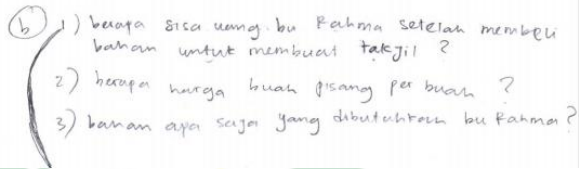 b
1) berapa sisa uang. bu Rahma setelah membeli
bahan untuk membuat takjil ?
2) berapa harga buah pisang per buah ?
3) bahan apa saja yang dibutuhkan bu Rahma?